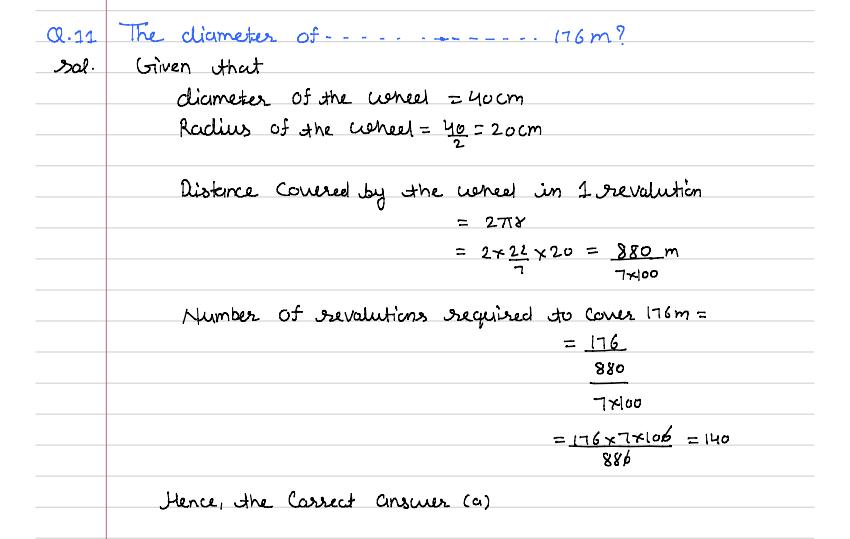 Q.11 The diameter of - - - - - - - - - - - - - 176m?
Sol. Given that
diameter of the wheel = 40cm
Radius of the wheel = 40/2 = 20cm
Distance Covered by the wheel in 1 revalution
= 2πr
= 2×22/7×20 = 880/7×100 m
Number of revalutions required to Cover 176m =
= 176/(880/7×100)
= 176×7×100/880 = 140
Hence, the Correct answer (a)